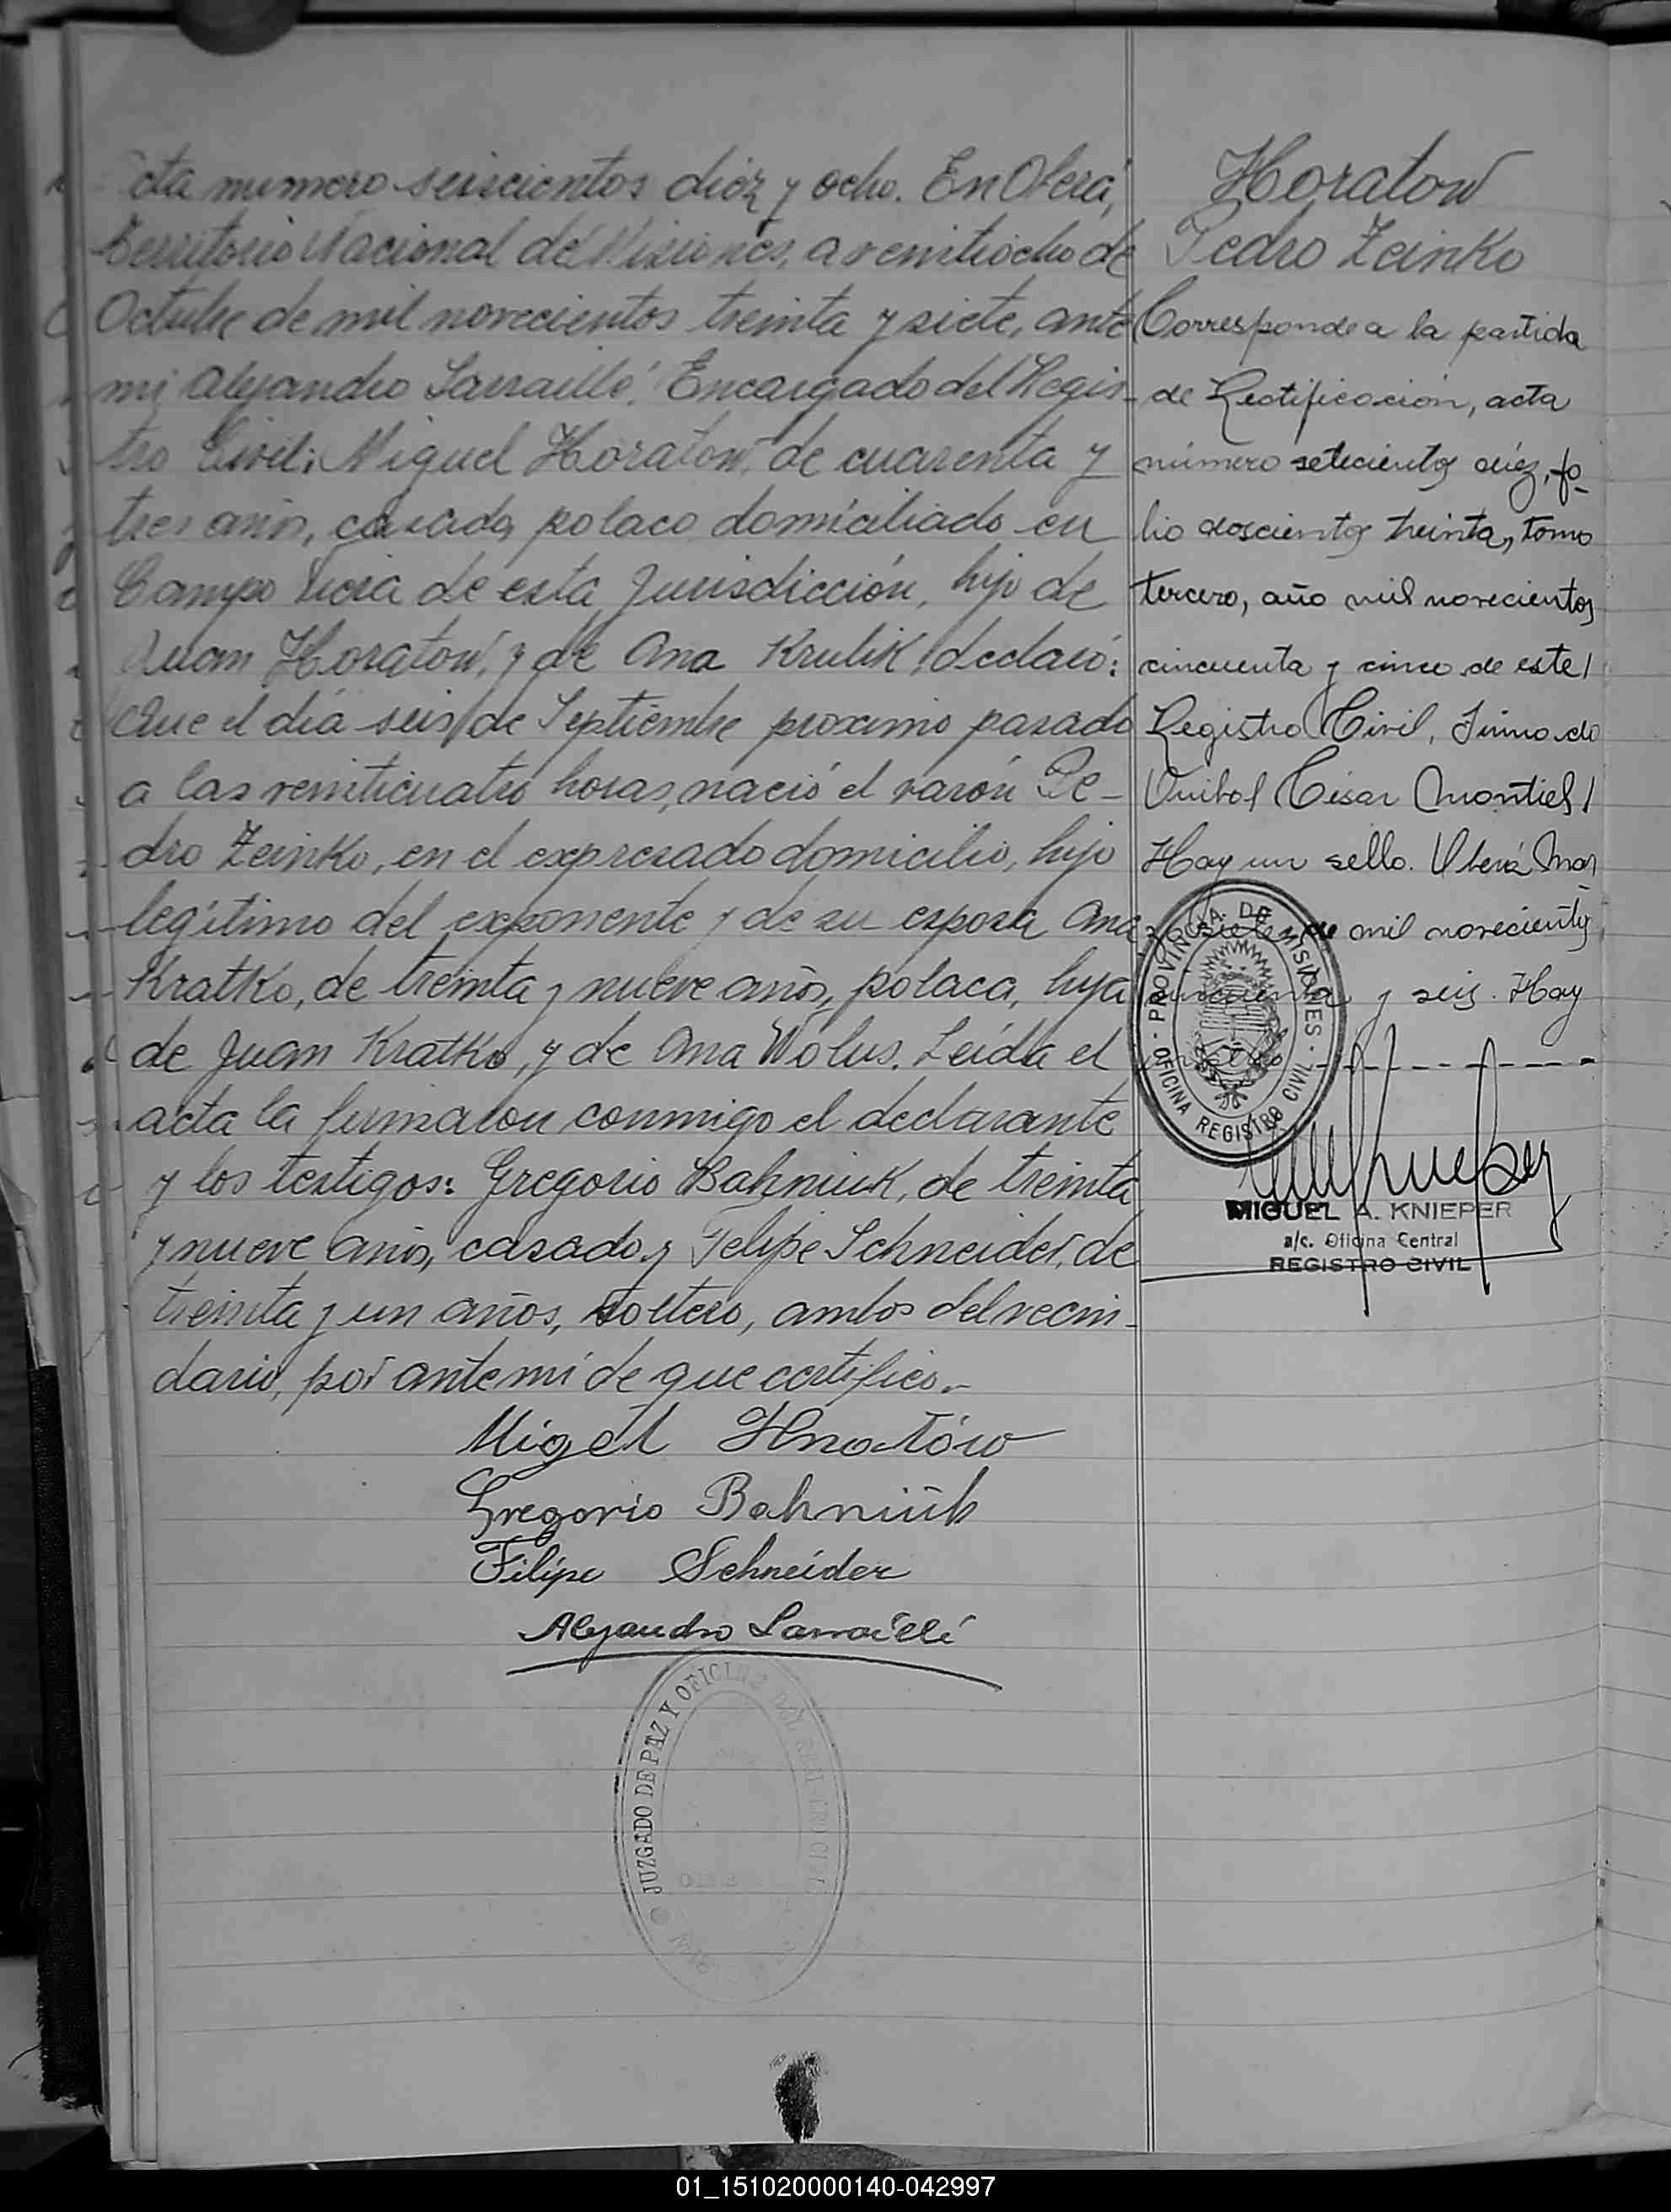 cta numero seiscientos diéz y ocho. En Oberá,
Territorio Nacional de Misiones, a veintiocho de
Octubre de mil novecientos treinta y siete, ante
mi Alejandro Sarraillé, Encargado del Regis-
tro Civil: Miguel Horatow, de cuarenta y
tres años, casado, polaco domiciliado en
Campo Viera de esta Jurisdicción, hijo de
Juan Horatow, y de Ana Krulik, declaró:
Que el día seis de Septiembre proximo pasado
a las veinticuatro horas, nació el varón Pe-
dro Zeinko, en el expresado domicilio, hijo
legítimo del exponente y de su esposa Ana
Kratko, de treinta y nueve años, polaca, hija
de Juan Kratko, y de Ana Wolus. Leída el
acta la firmaron conmigo el declarante
y los testigos: Gregorio Bahniuk, de treinta
y nueve años, casado y Felipe Schneider, de
treinta y un años, soltero, ambos del vecin-
dario, por ante mí de que certifico.-
Migel Hnatów
Gregorio Bahniuk
Filipe Schneider
Alejandro Sarraillé
JUZGADO DE PAZ Y OFICINA
Horatow
Pedro Zeinko
Corresponde a la partida
de Rectificación, acta
número setecientos diéz, fo-
lio doscientos treinta, tomo
tercero, año mil novecientos
cincuenta y cinco de este
Registro Civil, Firmado
Anibal César Montiel
Hay un sello. Oberá Mar
zo siete de mil novecientos
cincuenta y seis. Hay
PROVINCIA DE MISIONES
OFICINA REGISTRO CIVIL
MIGUEL A. KNIEPER
a/c. Oficina Central
REGISTRO CIVIL
01_151020000140-042997